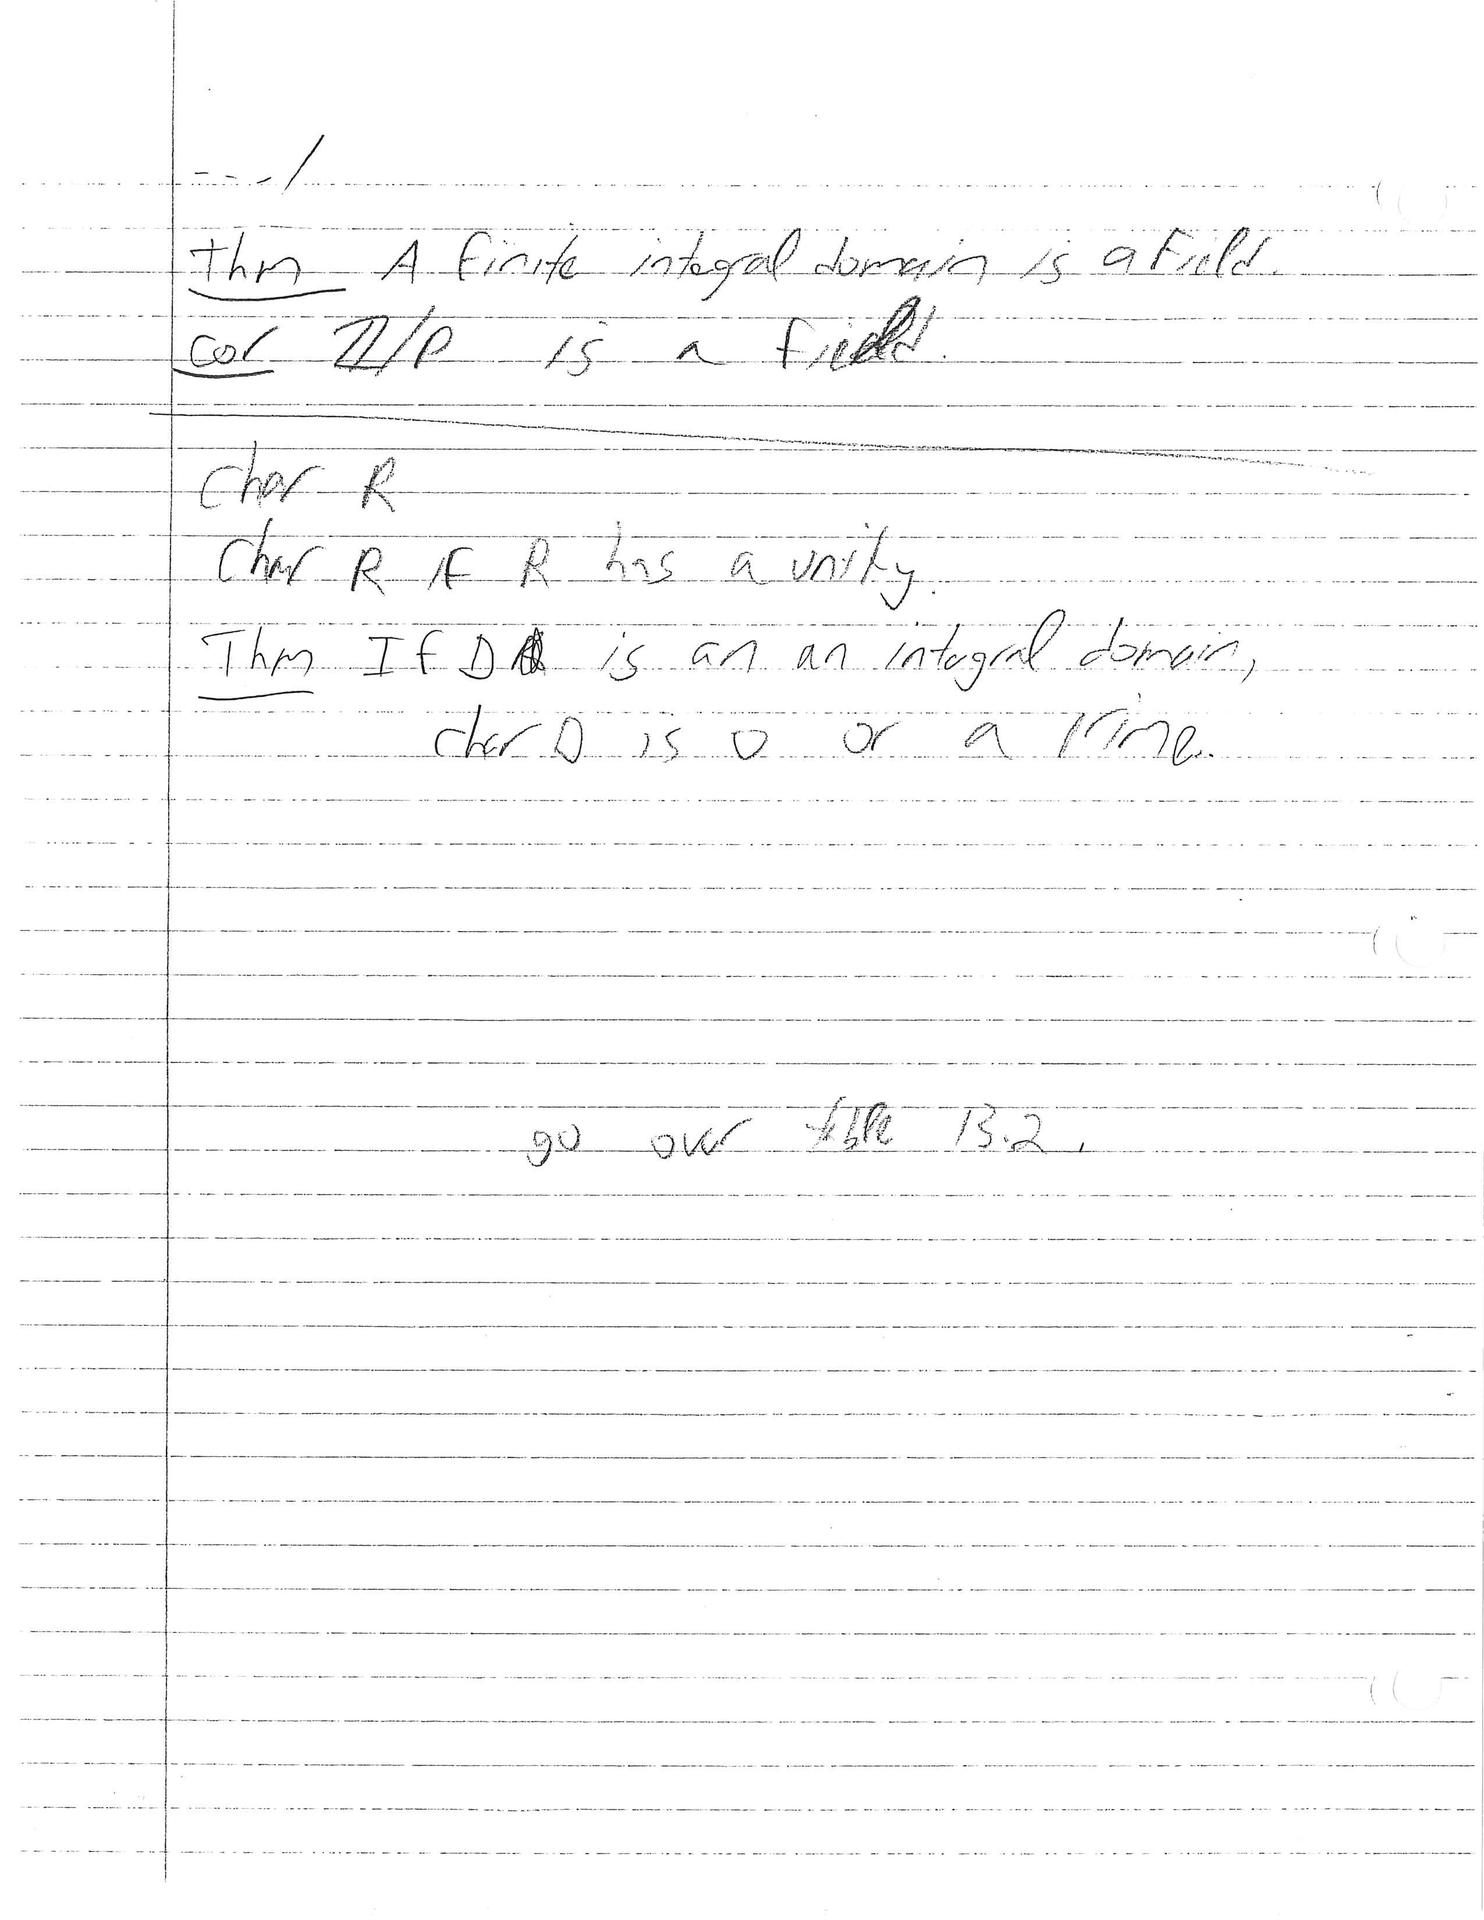 Thm A finite integral domain is a field.
cor ℤ/p is a field.
char R
char R if R has a unity.
Thm If D is an an integral domain,
char D is 0 or a prime.
go over table 13.2.